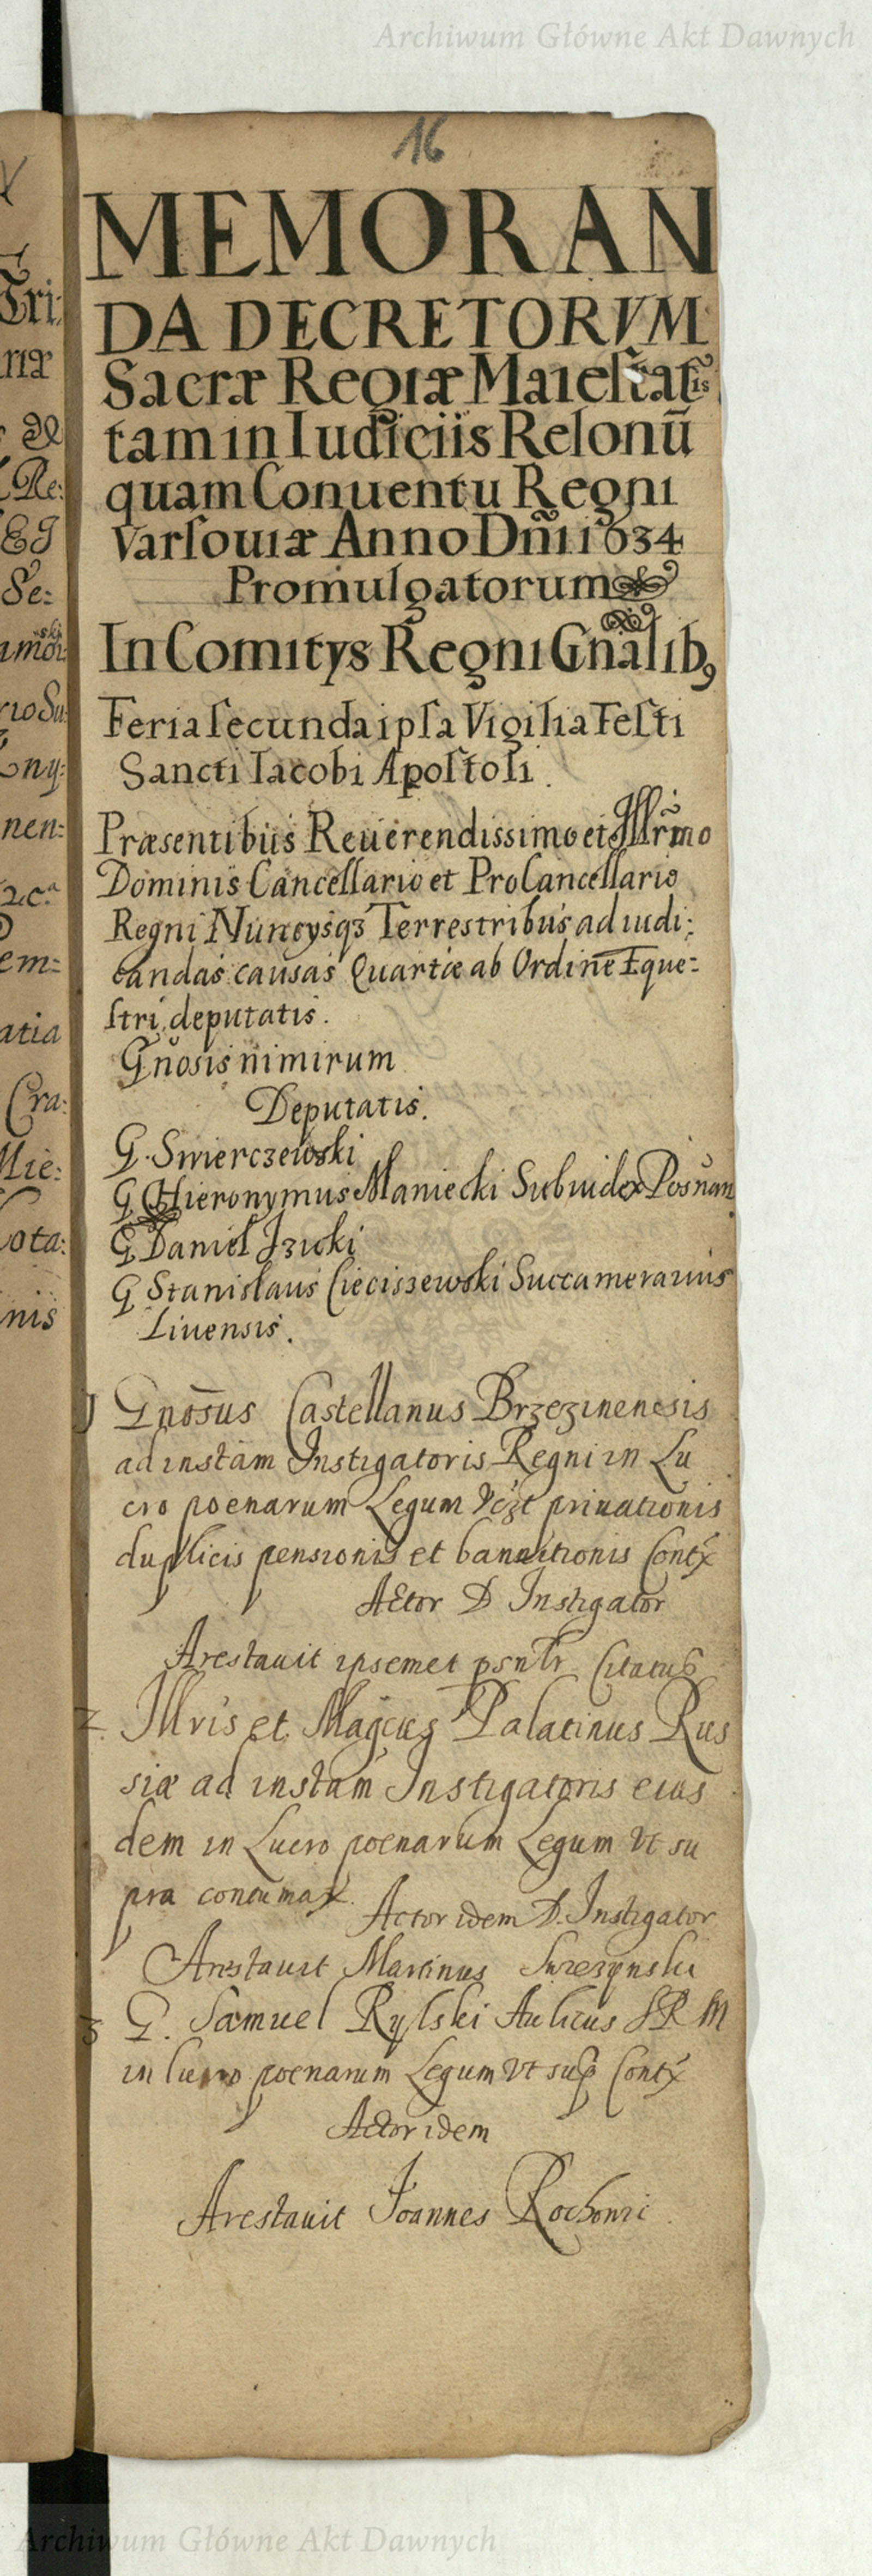 Archiwum Główne Akt Dawnych
16
MEMORAN
DA DECRETORVM
Sacræ Regiæ Maiestat̃is
tam in Iudiciis Relonũ
quam Conuentu Regni
Varsouiæ Anno Dñi 1634
Promulgatorum
In Comitys Regni Gñalib9
Feria secunda ipsa Vigilia Festi
Sancti Iacobi Apostoli.
Præsentibus Reuerendissimo et Illr̃mo
Dominis Cancellario et ProCancellario
Regni Nuncysqz Terrestribus ad iudi:
candas causas Quartæ ab Ordine Eque:
stri deputatis.
Gñosis nimirum
Deputatis.
G. Swierczewski
G Hieronymus Maniecki Subiudex Posnan
G Daniel Izicki
G Stanislaus Cieciszewski Succamerarius
Liuensis.
1 Gnõsus Castellanus Brzezinensis
ad instam Instigatoris Regni in Lu
cro poenarum Legum vczt priuationis
duplicis pensionis et bannitionis Contx
Actor D Instigator
Arestauit ipsemet psntr Citatus
2. Illris et Magcus Palatinus Rus
siæ ad instam Instigatoris eius
dem in Lucro poenarum Legum vt su
pra contumax. Actor idem D. Instigator
Arestauit Martinus
3 G. Samuel Rylski Aulicus S R M
in lucro poenarum Legum vt sup Contx
Actor idem
Arestauit Joannes
Tri:
Re:
Se:
nen:
em:
atia
Cra:
Mie:
ota:
nis
Archiwum Główne Akt Dawnych